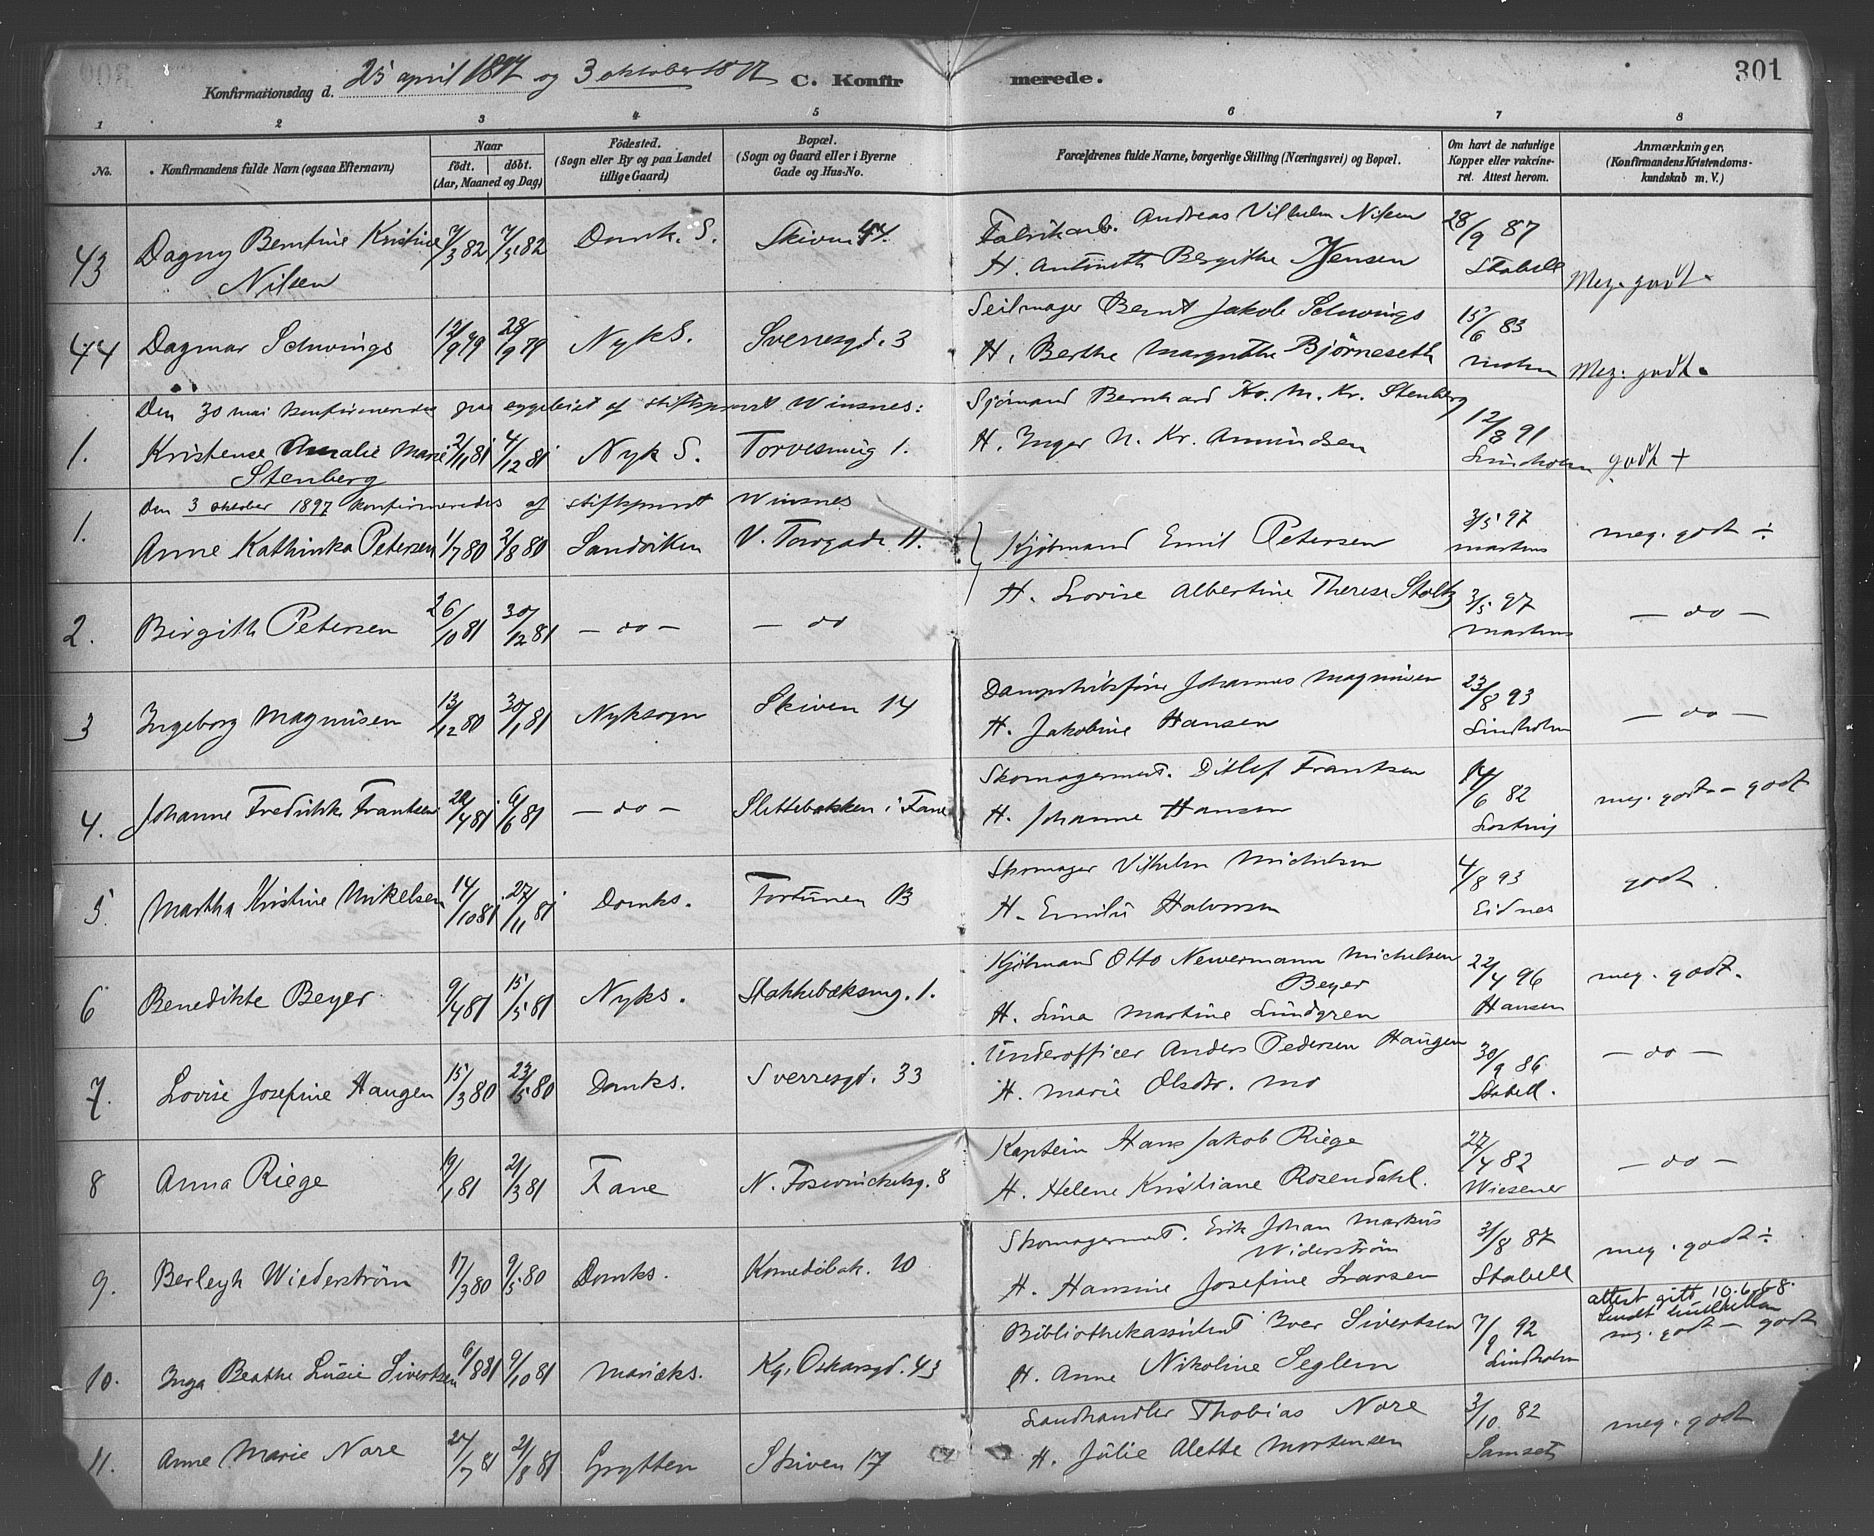 301
Konfirmationsdag d. 25 april 1897 og 3 oktober 1897 C. Konfirmerede.
1 2 3 4 5 6 7 8
No. Konfirmandens fulde Navn (ogsaa Efternavn) Naar født. døbt. (Aar, Maaned og Dag) Fødested. (Sogn eller By og paa Landet tillige Gaard) Bopæl. (Sogn og Gaard eller i Byerne Gade og Hus-No. Forældrenes fulde Navne, borgerlige Stilling (Næringsvei) og Bopæl. Om havt de naturlige Kopper eller vakcineret. Attest herom. Anmærkninger. (Konfirmandens Kristendomskundskab m. V.)
43 Dagny Berntine Kristine 7/3 82 7/5 82 Domk. S. Skiven 44. Fabrikarb. Andreas Vilhelm Nilsen 28/9 87
Nilsen H. Antonette Bergithe Jensen Stabell Meg. godt.
44 Dagmar Schwings 12/9 79 28/9 79 Nyk S. Sverresgd. 3 Seilmager Bernt Jakob Schwings 15/6 83
H. Berthe Margrethe Bjørneseth Mohn Meg. godt.
Den 30 mai konfirmeredes paa eggeleiet af stiftsprovst Winsnes:
Sjømand Bernhard Kr. M. Kr. Stenberg 12/8 91
1. Kristense Amalie Marie 2/11 81 4/12 81 Nyk S. Torvesmug 1. H. Inger N. Kr. Amundsen Lindholm godt +
Stenberg
Den 3 oktober 1897 konfirmeredes af stiftsprovst Winsnes
1. Anne Kathinka Petersen 1/7 80 2/8 80 Sandviken V. Torvgade 11. Kjøbmand Emil Petersen 3/5 97 Martens meg. godt ÷
H. Lovise Albertine Therese Stoltz
2. Birgith Petersen 26/10 81 30/12 81 — do — — do 3/5 97 Martens — do —
3 Ingeborg Magnusen 13/12 80 30/1 81 Nyksogn Skiven 14 Dampskibsfører Johannes Magnusen 23/8 93
H. Jakobine Hansen Lindholm — do —
4. Johanne Fredrikke Frantsen 28/4 81 6/6 81 — do — Slettebakken i Fane Skomagermest. Ditlef Frantsen 14/6 82 meg. godt - godt
H. Johanne Hansen
5. Martha Kristine Mikelsen 14/10 81 27/11 81 Domks. Fortunen B Skomager Vilhelm Michelsen 4/8 93 godt.
H. Emilie Halvorsen Eidnes
6 Benedikte Beyer 9/4 81 15/5 81 Nyks. Stakkebæksmg. 1. Kjøbmand Otto Newermann Michelsen 22/4 96 meg. godt.
Beyer
H. Lina Martine Lundgren Hansen
7. Lovise Josefine Haugen 15/3 80 23/5 80 Domks. Sverresgd. 33 Underofficer Anders Pedersen Haugen 30/9 86 — do —
H. Marie Olsdtr. Mo Stabell.
8 Anna Riege 19/1 81 21/3 81 Fane N. Fosswinckelsg. 8 Kaptein Hans Jakob Riege 27/4 82 — do —
H. Helene Kristiane Rosendahl. Wiesener
9. Berleyh Wiederstrøm 17/3 80 9/5 80 Domks. Komediebak. 10 Skomagermest. Erik Johan Markus 31/8 87 meg. godt ÷
Widerstrøm
H. Hansine Josefine Larsen Stabell
attest gitt 10.6.68.
10. Inga Beathe Lusie Sivertsen 6/8 81 9/10 81 Mariæks. Kg. Oskarsgd. 43 Bibliothekassistent Iver Sivertsen 7/9 92 meg. godt - godt
H. Anne Nikoline Seglem Lindholm
11. Anne Marie Nore 24/7 81 21/8 81 Grytten Skiven 17 Landhandler Thobias Nore 3/10 82 meg. godt
H. Julie Alette Mortensen Samset